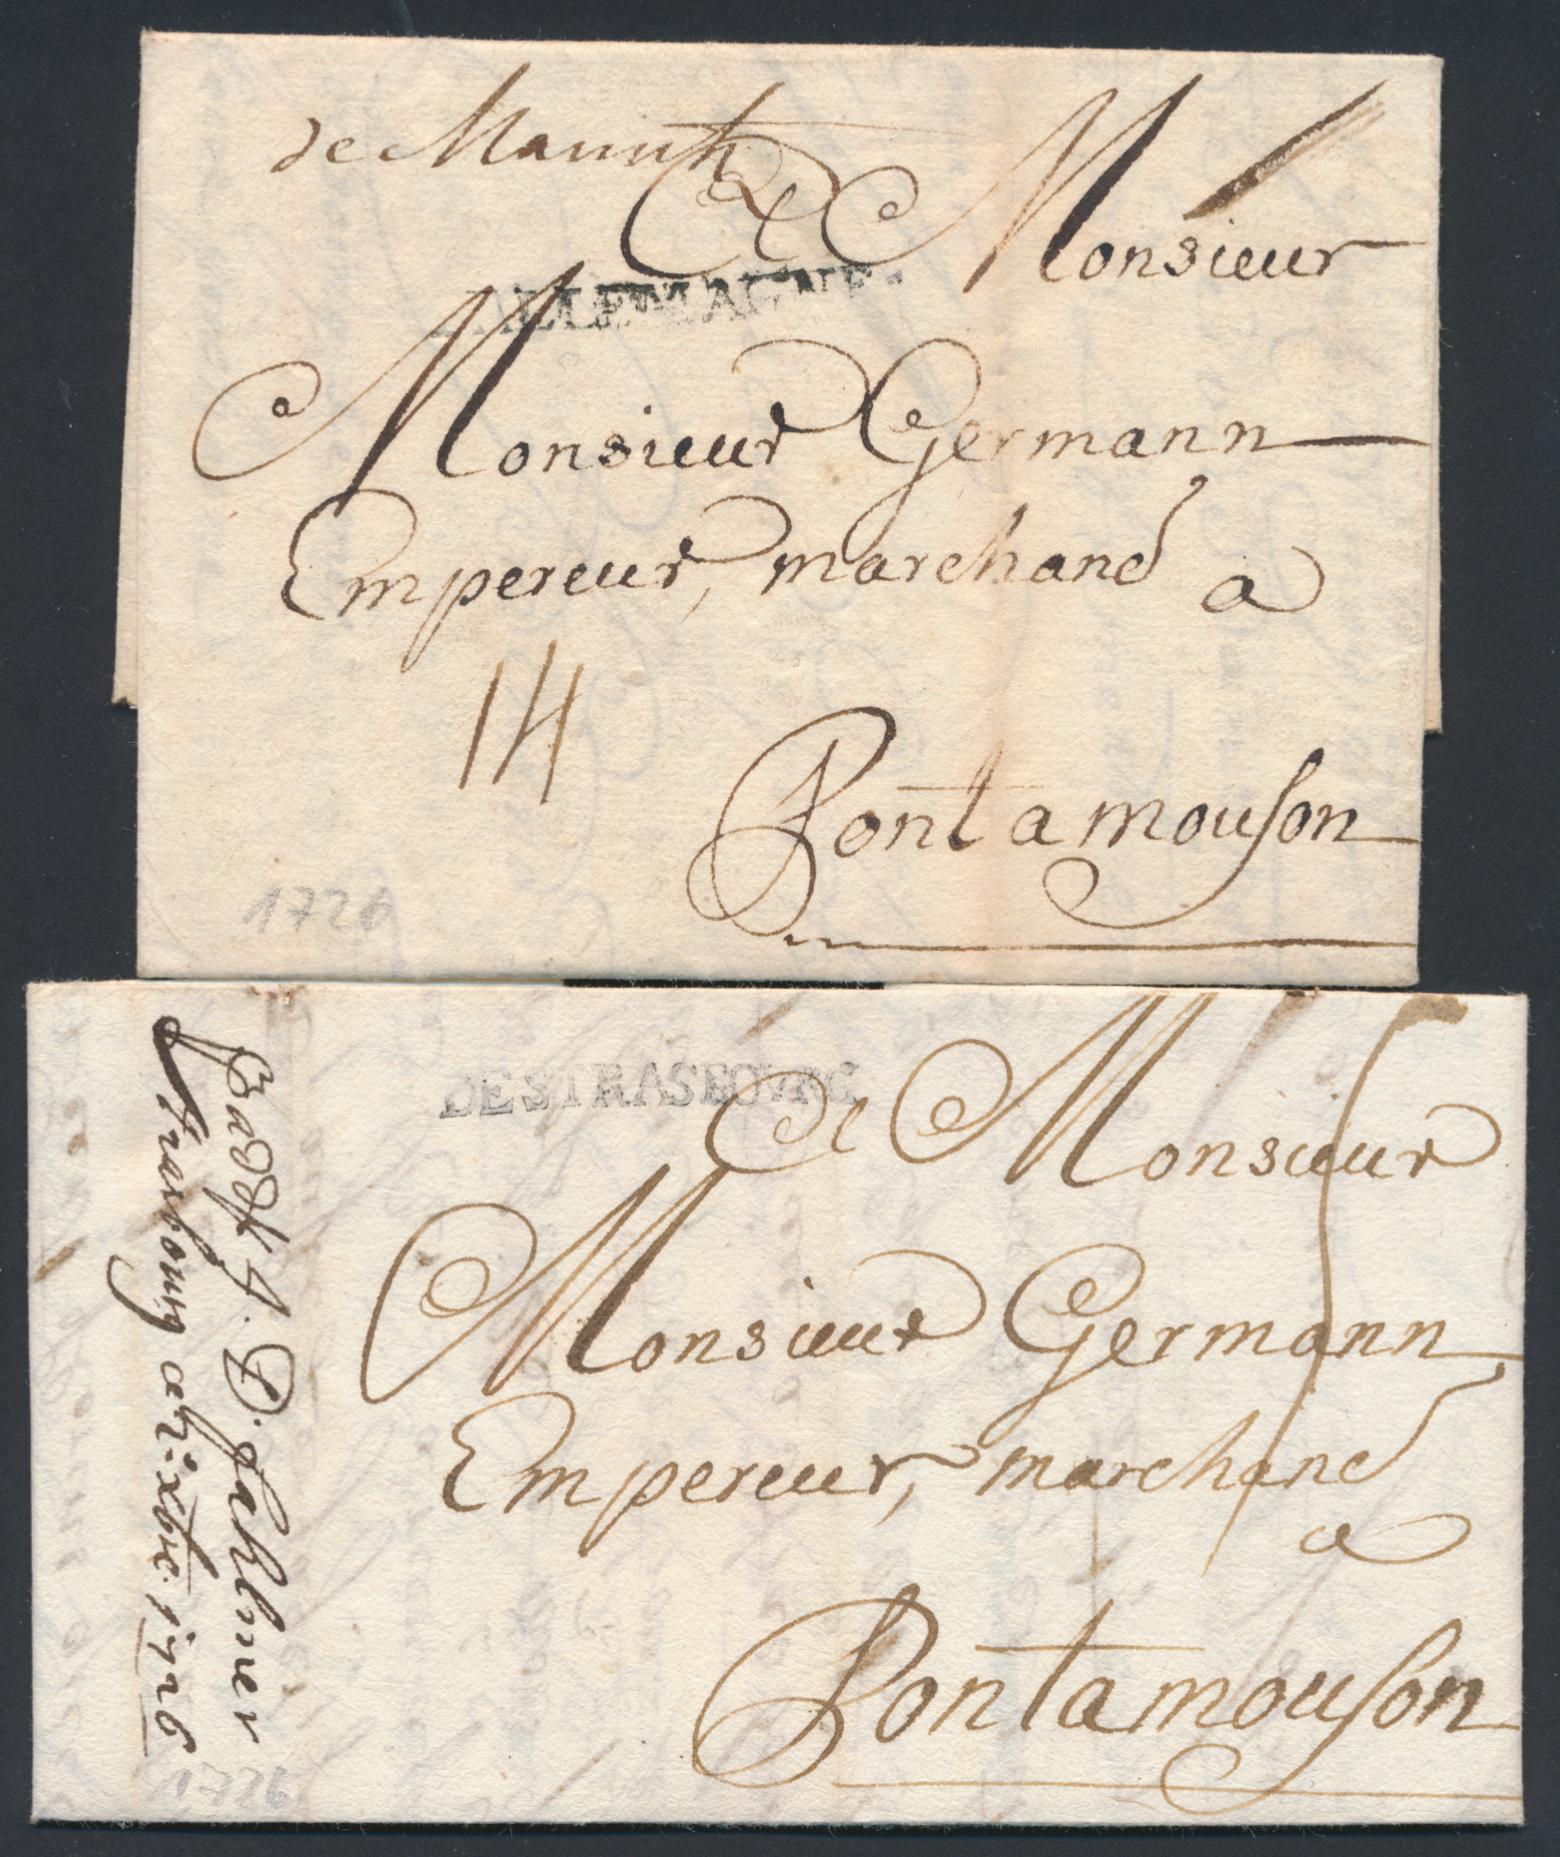 de Munich
A Monsieur
ALLEMAGNE.
Monsieur Germann
Empereur, marchand a
14
Pont a mouson
1726
DE STRASBOVRG
A Monsieur
Monsieur Germann
Empereur, marchand
a
Pontamouson
J. D. fahlmer
Strasbourg ce 7.e xbre. 1726
1726